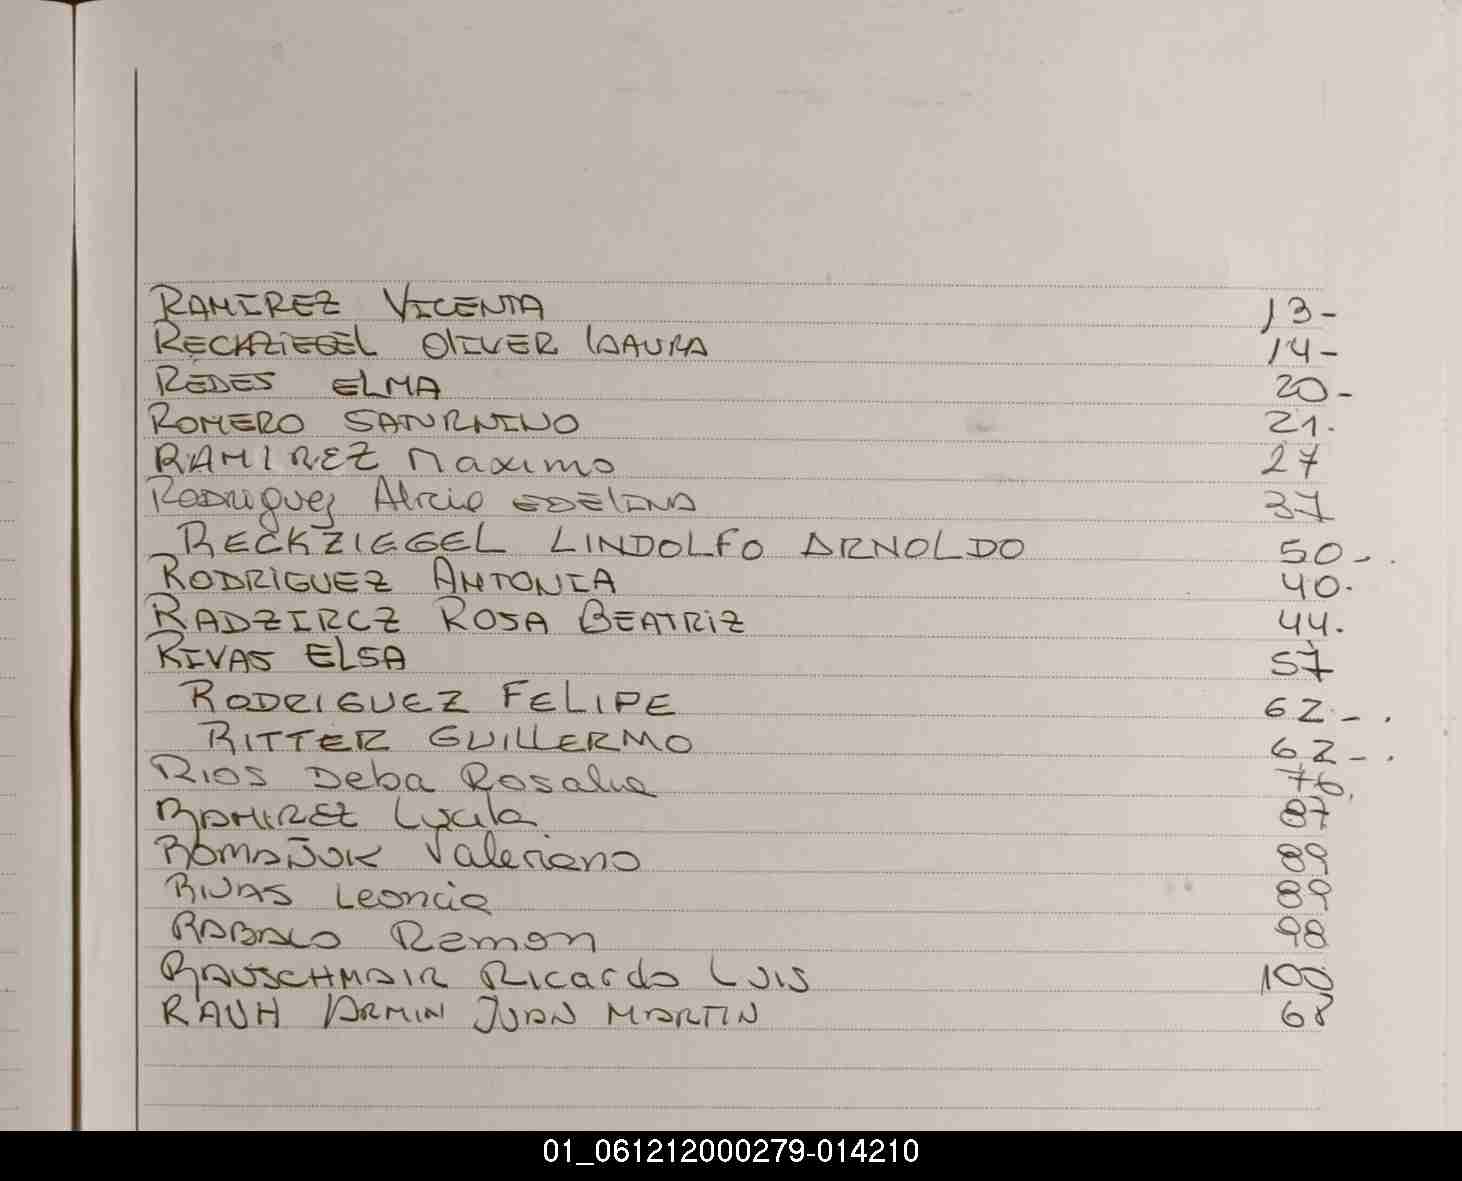 RAMIREZ VICENTA 13-
RECKZIEGEL OLIVER LAURA 14-
REDES ELMA 20-
ROMERO SATURNINO 21.
RAMIREZ Maximo 27
RODRIGUEZ Alicia EDELINA 37
RECKZIEGEL LINDOLFO ARNOLDO 50-.
RODRIGUEZ ANTONIA 40.
RADZIRCZ ROSA BEATRIZ 44.
RIVAS ELSA 57
RODRIGUEZ FELIPE 62-.
RITTER GUILLERMO 62-.
RIOS Deba Rosalia 76.
RAMIREZ Lucila 87
ROMAÑUK Valeriano 89
RIVAS Leoncia 89
RABALO Ramon 98
RAUSCHMAIR Ricardo LUIS 100
RAUH ARMIN JUAN MARTIN 68
01_061212000279-014210